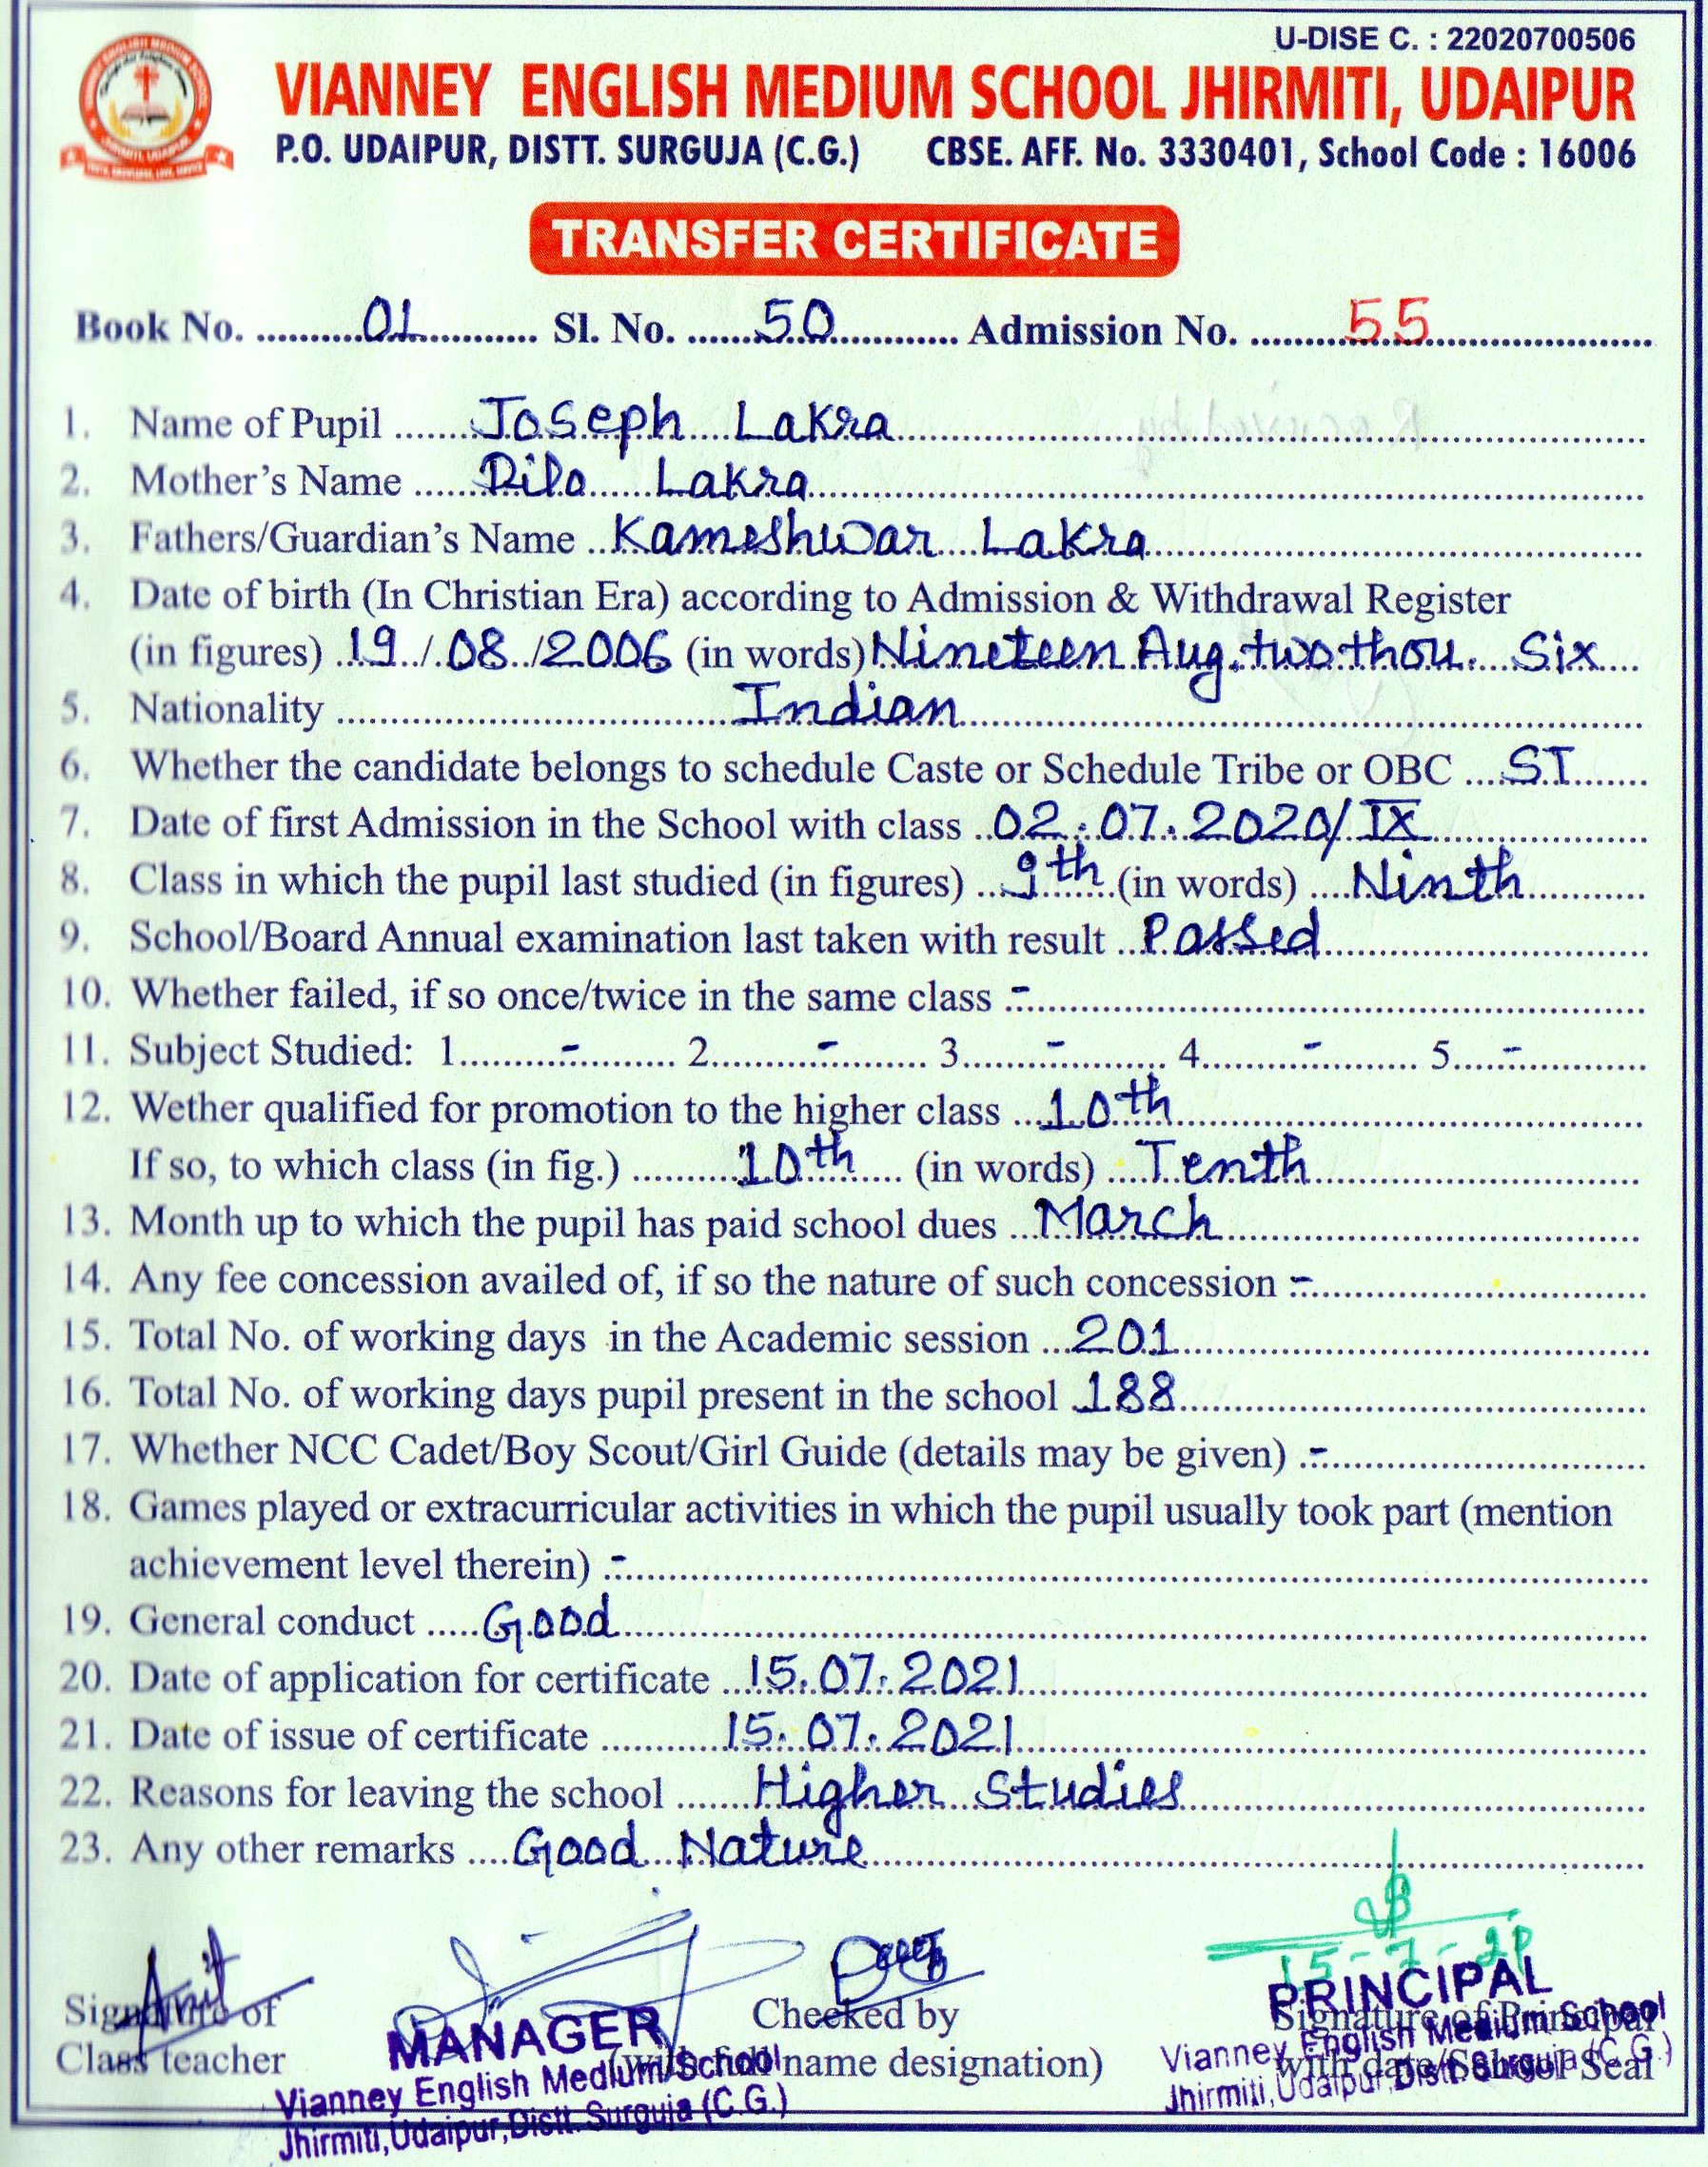 U-DISE C. : 22020700506
VIANNEY ENGLISH MEDIUM SCHOOL JHIRMITI, UDAIPUR
P.O. UDAIPUR, DISTT. SURGUJA (C.G.) CBSE. AFF. No. 3330401, School Code : 16006
TRANSFER CERTIFICATE
Book No. 01 Sl. No. 50 Admission No. 55
1. Name of Pupil Joseph Lakra
2. Mother's Name Lakra
3. Fathers/Guardian's Name Kameshwar Lakra
4. Date of birth (In Christian Era) according to Admission & Withdrawal Register
(in figures) 19/08/2006 (in words) Nineteen Aug. two thou. Six
5. Nationality Indian
6. Whether the candidate belongs to schedule Caste or Schedule Tribe or OBC ST
7. Date of first Admission in the School with class 02.07.2020/IX
8. Class in which the pupil last studied (in figures) 9th (in words) Ninth
9. School/Board Annual examination last taken with result Passed
10. Whether failed, if so once/twice in the same class -
11. Subject Studied: 1. - 2. - 3. - 4. - 5. -
12. Wether qualified for promotion to the higher class 10th
If so, to which class (in fig.) 10th (in words) Tenth
13. Month up to which the pupil has paid school dues March
14. Any fee concession availed of, if so the nature of such concession -
15. Total No. of working days in the Academic session 201
16. Total No. of working days pupil present in the school 188
17. Whether NCC Cadet/Boy Scout/Girl Guide (details may be given) -
18. Games played or extracurricular activities in which the pupil usually took part (mention
achievement level therein) -
19. General conduct Good
20. Date of application for certificate 15.07.2021
21. Date of issue of certificate 15.07.2021
22. Reasons for leaving the school Higher Studies
23. Any other remarks Good Nature
Signature of
Class teacher
MANAGER
Vianney English Medium School
Jhirmiti, Udaipur, Distt. Surguja (C.G.)
Checked by
(with full name designation)
PRINCIPAL
Vianney English Medium School
Jhirmiti, Udaipur, Distt. Surguja (C.G.)
Signature of Principal
with date/School Seal